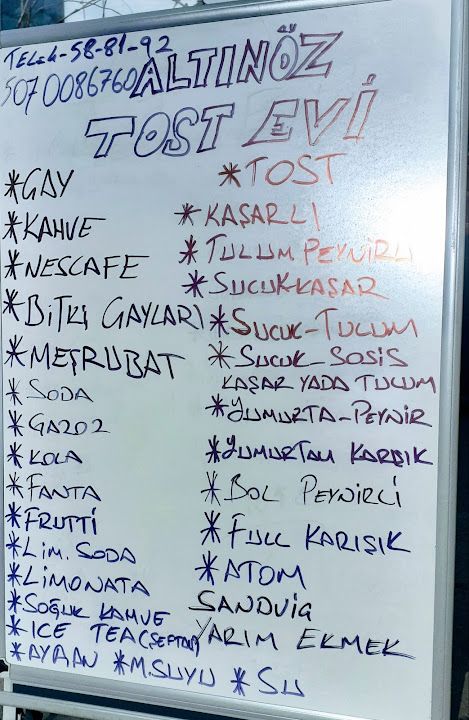 TEL:4-58-81-92
507 0086760 ALTINÖZ
TOST EVİ
*ÇAY
*KAHVE
*NESCAFE
*BİTKİ ÇAYLARI
*MEŞRUBAT
*SODA
*GAZOZ
*KOLA
*FANTA
*FRUTTİ
*LİM.SODA
*LİMONATA
*SOĞUK KAHVE
*ICE TEA(ŞEFTALİ)
*AYRAN *M.SUYU *SU
*TOST
*KAŞARLI
*TULUM PEYNİRLİ
*SUCUK-KAŞAR
*SUCUK-TULUM
*SUCUK-SOSİS
KAŞAR YADA TULUM
*YUMURTA-PEYNİR
*YUMURTALI KARIŞIK
*BOL PEYNİRLİ
*FULL KARIŞIK
*ATOM
SANDVİÇ
YARIM EKMEK